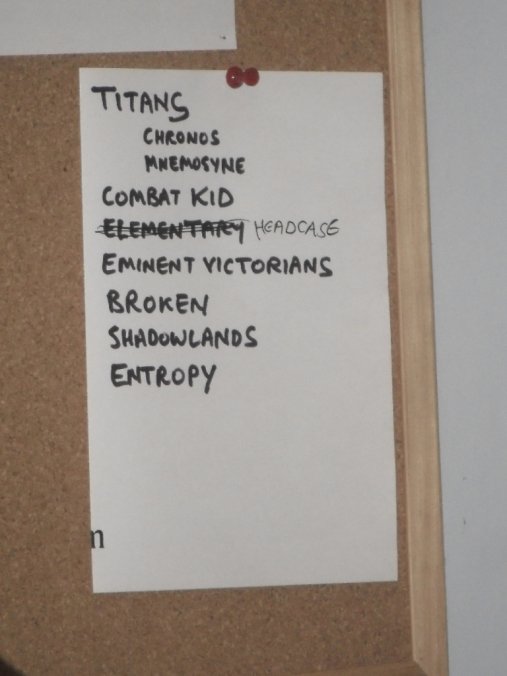 TITANS
CHRONOS
MNEMOSYNE
COMBAT KID
ELEMENTARY HEADCASE
EMINENT VICTORIANS
BROKEN
SHADOWLANDS
ENTROPY
n